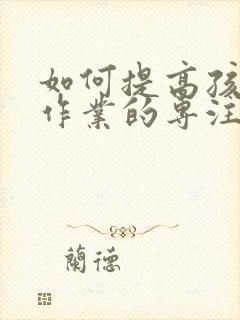 如何提高孩
作業的專注
蘭德